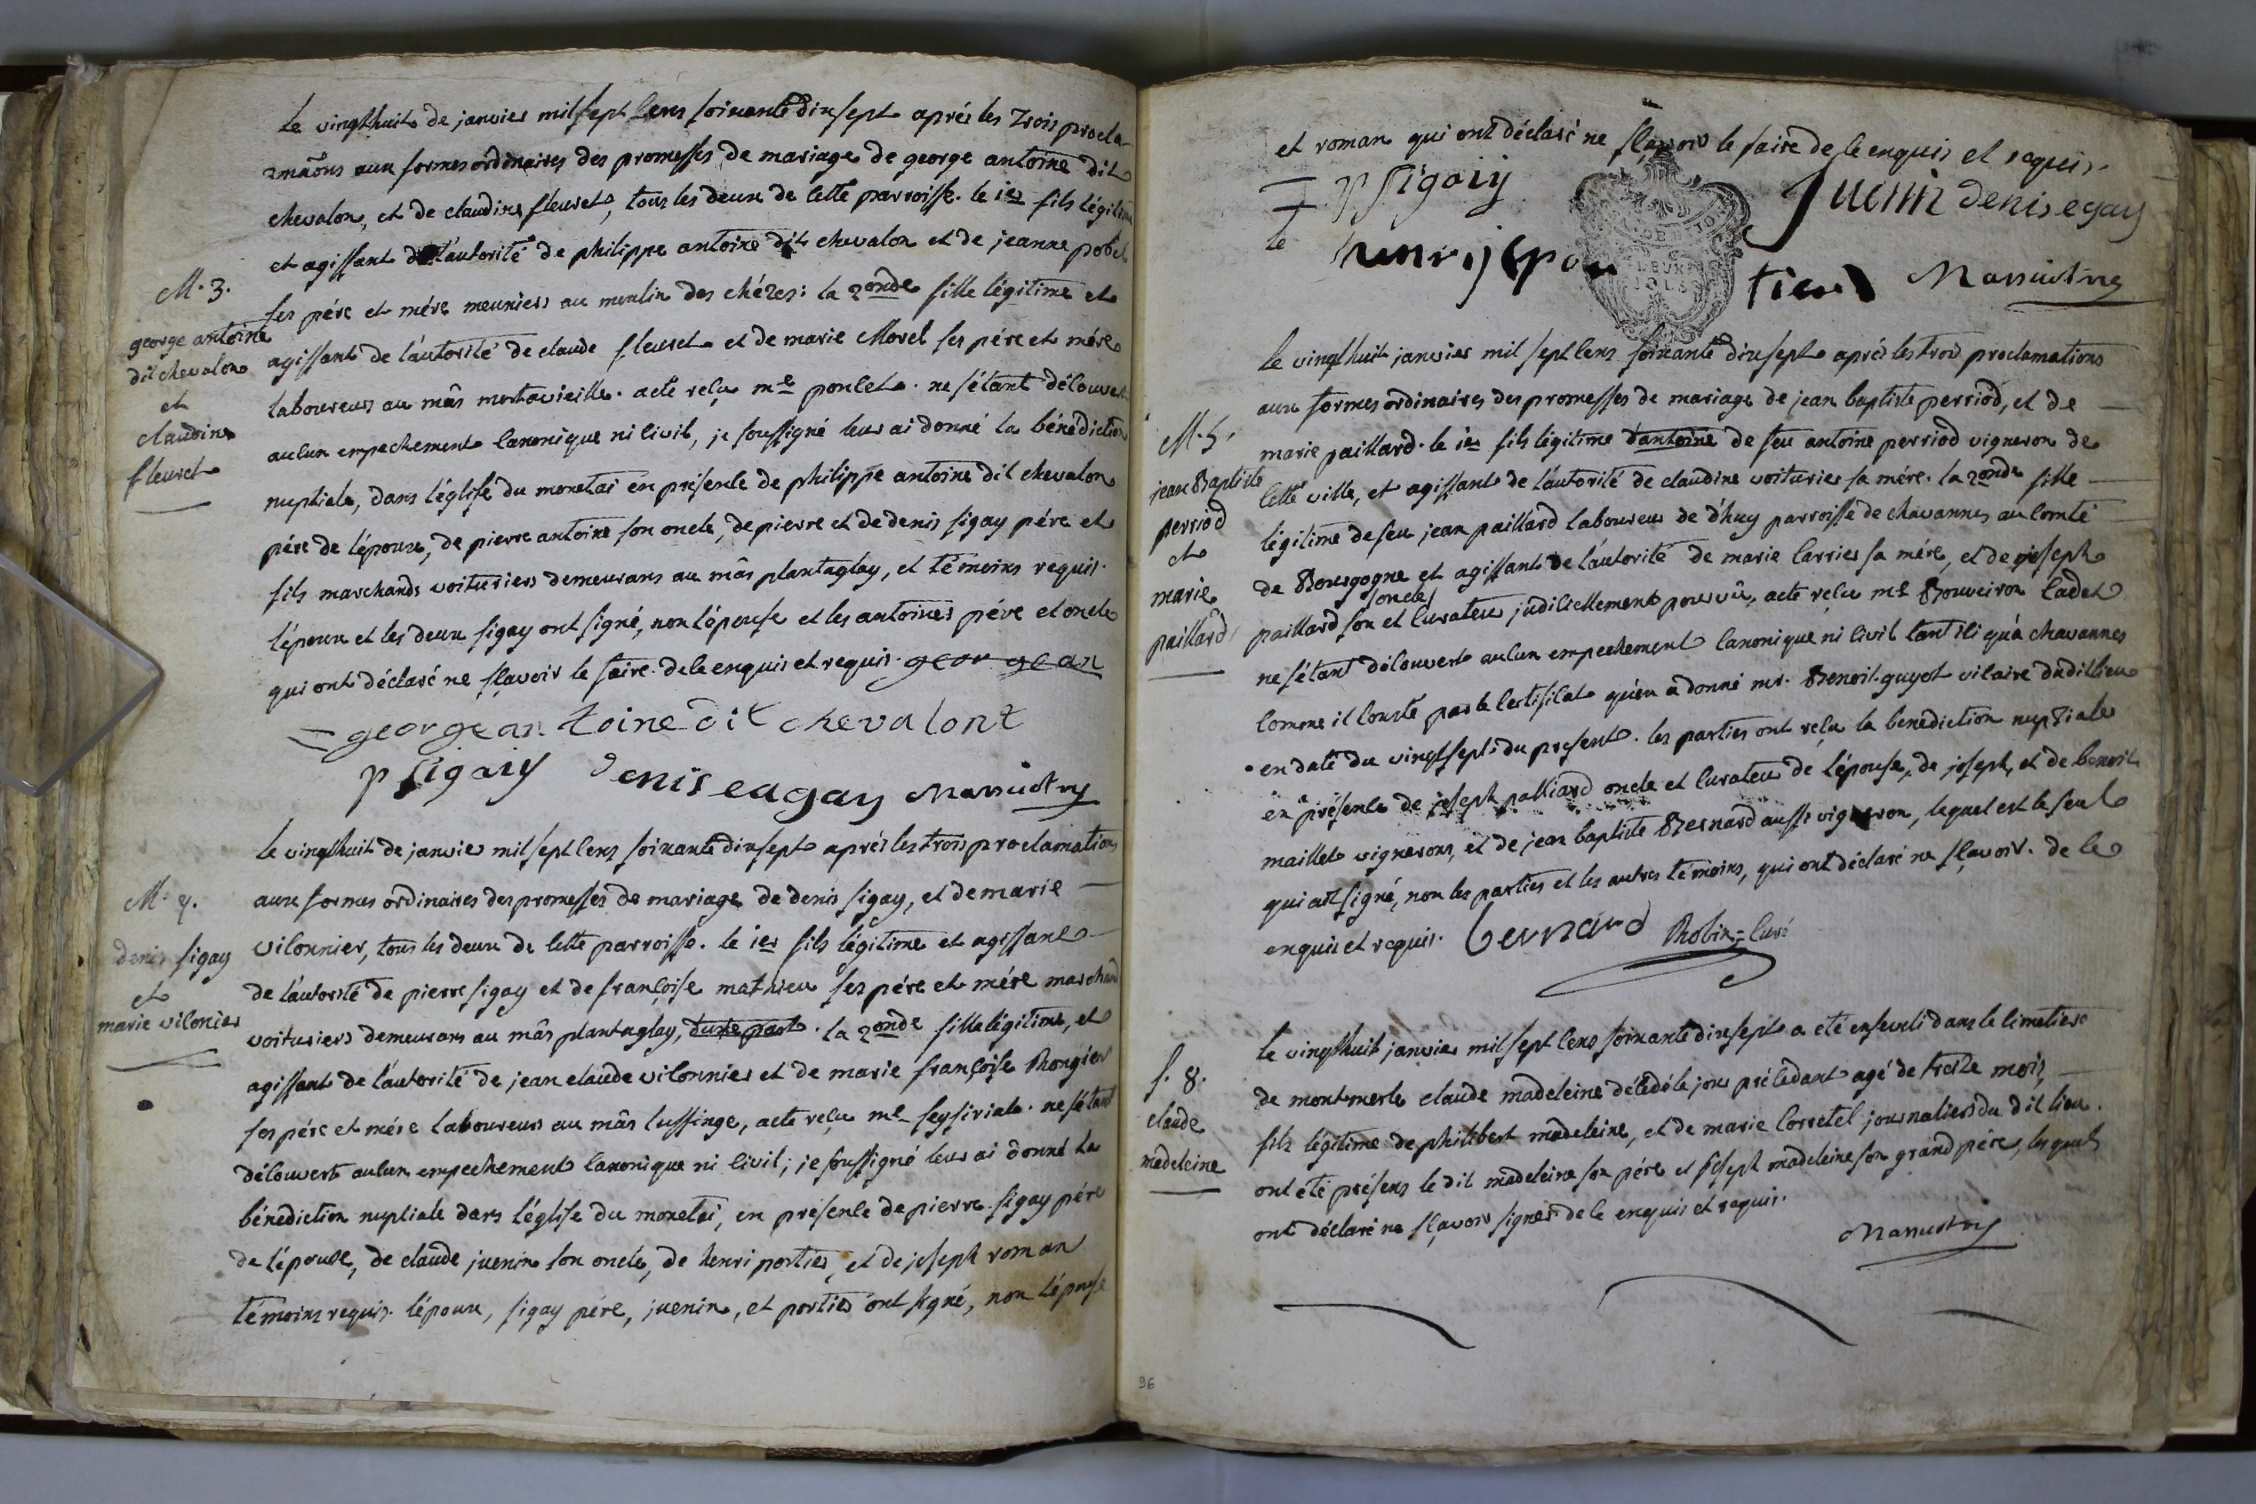 le vingthuit de janvier mil sept cens soixante dix sept aprés les trois procla-
amaõns aux formes ordinaires des promesses de mariage de george antoine dit
chevalon, et de claudine fleuret, tous les deux de cette parroisse. le 1er fils légitime
et agissant de l'autorité de philippe antoine dit chevalon et de jeanne pobel
M. 3.
george antoine
dit chevalon
et
claudine
fleuret
ses pére et mére meuniers au moulin des chézes: la 2onde fille légitime et
agissant de l'autorité de claude fleuret et de marie Morel ses pére et mére
laboureurs au mâs mortavieille. acte reçu me poncet. ne s'étant découvert
aucun empechement canonique ni civil, je soussigné leur ai donné la bénédiction
nuptiale, dans l'église du monetai en présence de philippe antoine dit chevalon
pére de l'époux, de pierre antoine son oncle, de pierre et de denis sigay pére et
fils marchands voituriers demeurans au mâs plantaglay, et témoins requis.
l'époux et les deux sigay ont signé, non l'épouse et les antoines pére et oncle
qui ont déclaré ne sçavoir le faire. de ce enquis et requis. george an
george antoine dit chevalont
p sigaiy denis eagay Manustry
M. 4.
denis sigay
et
marie vilonier
le vingthuit de janvier mil sept cens soixante dix sept aprés les trois proclamations
aux formes ordinaires des promesses de mariage de denis sigay, et de marie
vilonnier, tous les deux de cette parroisse. le 1er fils légitime et agissant
de l'autorité de pierre sigay et de françoise mathieu ses pére et mére marchand
voituriers demeurans au mâs plantaglay, d'une part. la 2onde fille légitime, et
agissant de l'autorité de jean claude vilonnier et de marie françoise Rongier
ses pére et mére laboureurs au mâs lussinge, acte reçu me seyssiriat. ne s'étant
découvert aucun empechement canonique ni civil; je soussigné leur ai donné la
bénédiction nuptiale dans l'église du monetai, en présence de pierre sigay pére
de l'époux, de claude juenin son oncle, de henri portier, et de joseph roman
témoins requis. l'époux, sigay pére, juenin, et portier ont signé, non l'épouse
et roman qui ont déclaré ne sçavoir le faire de ce enquis et requis.
p sigaiy juenin denis egay
le henrij epou tier Manustry
M. 5.
jean Baptiste
perriod
et
marie
paillard
le vingthuit janvier mil sept cens soixante dix sept aprés les trois proclamations
aux formes ordinaires des promesses de mariage de jean baptiste perriod, et de
marie paillard. le 1er fils légitime d'antoine de feu antoine perriod vigneron de
cette ville, et agissant de l'autorité de claudine voiturier sa mére. la 2onde fille
légitime de feu jean paillard laboureur de d'huy parroisse de chavannes au comté
de Bourgogne et agissant de l'autorité de marie carrier sa mére, et de joseph
paillard son oncle et curateur judiciellement pourvû, acte reçu me Bouveiron cadet
ne s'étant découvert aucun empechement canonique ni civil tant ici qu'à chavannes
comme il conste par le certificat qu'en a donné mr. Benoit guyot vicaire du dit lieu
en date du vingtsept du present. les parties ont reçu la benediction nuptiale
en présence de joseph palliard oncle et curateur de l'épouse, de joseph, et de benoit
maillet vignerons, et de jean baptiste Bernard aussi vigneron, lequel est le seul
qui ait signé, non les parties et les autres témoins, qui ont déclaré ne sçavoir. de ce
enquis et requis. bernard Robin = curé
S. 8.
claude
madeleine
le vingthuit janvier mil sept cens soixante dix sept a eté enseveli dans le cimetiere
de montmerle claude madeleine décédé le jour précédant agé de treize mois,
fils légitime de philibert madeleine, et de marie corretel journaliers du dit lieu.
ont eté présens le dit madeleine son pére et joseph madeleine son grand pére, lesquels
ont déclaré ne sçavoir signer de ce enquis et requis.
Manustry
96